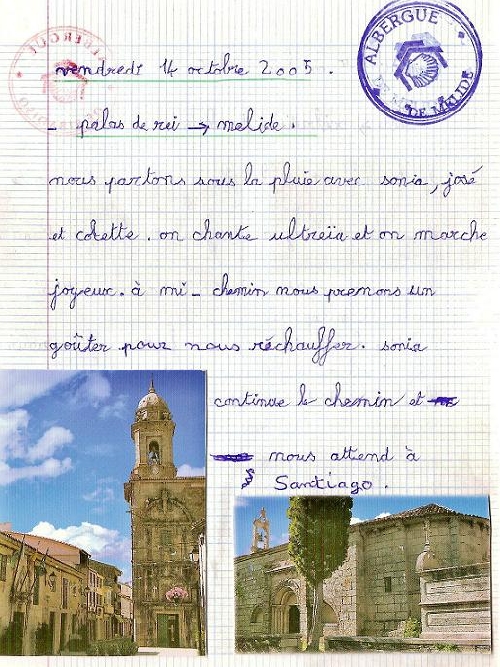 vendredi 14 octobre 2005.
ALBERGUE
DE MELIDE
- palas de rei → melide.
nous partons sous la pluie avec sonia, josé
et colette. on chante ultreïa et on marche
joyeux. à mi-chemin nous prenons un
goûter pour nous réchauffer. sonia
continue le chemin et
nous attend à
Santiago.